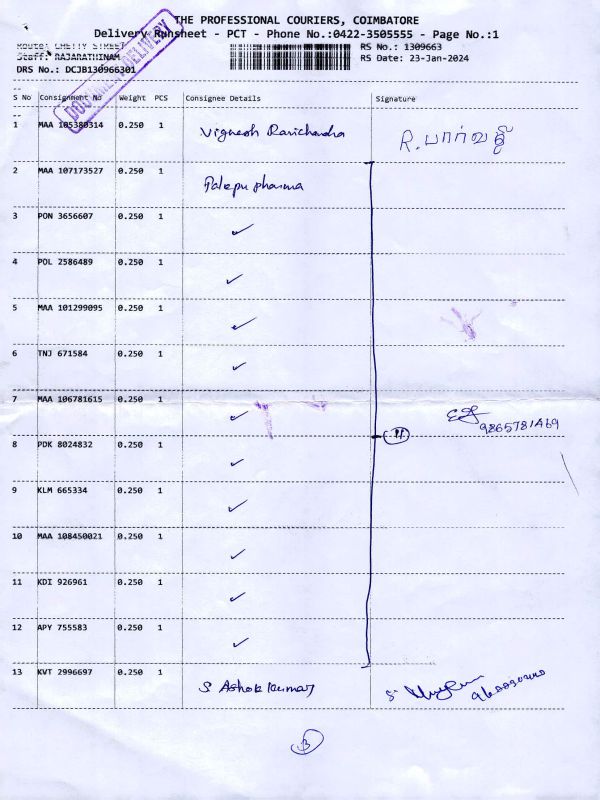 THE PROFESSIONAL COURIERS, COIMBATORE
Delivery Runsheet - PCT - Phone No.:0422-3505555 - Page No.:1
Route: CHETTY STREET RS No.: 1309663
Staff: RAJARATHINAM RS Date: 23-Jan-2024
DRS No.: DCJB130966301
DOCUMENT DELIVERY
S No Consignment No Weight PCS Consignee Details Signature
1 MAA 105380314 0.250 1 Vignesh Ravichandra R. பார்வதி
2 MAA 107173527 0.250 1 Palepu pharma
3 PON 3656607 0.250 1 ✓
4 POL 2586489 0.250 1 ✓
5 MAA 101299095 0.250 1 ✓
6 TNJ 671584 0.250 1 ✓
7 MAA 106781615 0.250 1 ✓ 9865781469
11
8 PDK 8024832 0.250 1 ✓
9 KLM 665334 0.250 1 ✓
10 MAA 108450021 0.250 1 ✓
11 KDI 926961 0.250 1 ✓
12 APY 755583 0.250 1 ✓
13 KVT 2996697 0.250 1 S Ashok kumar